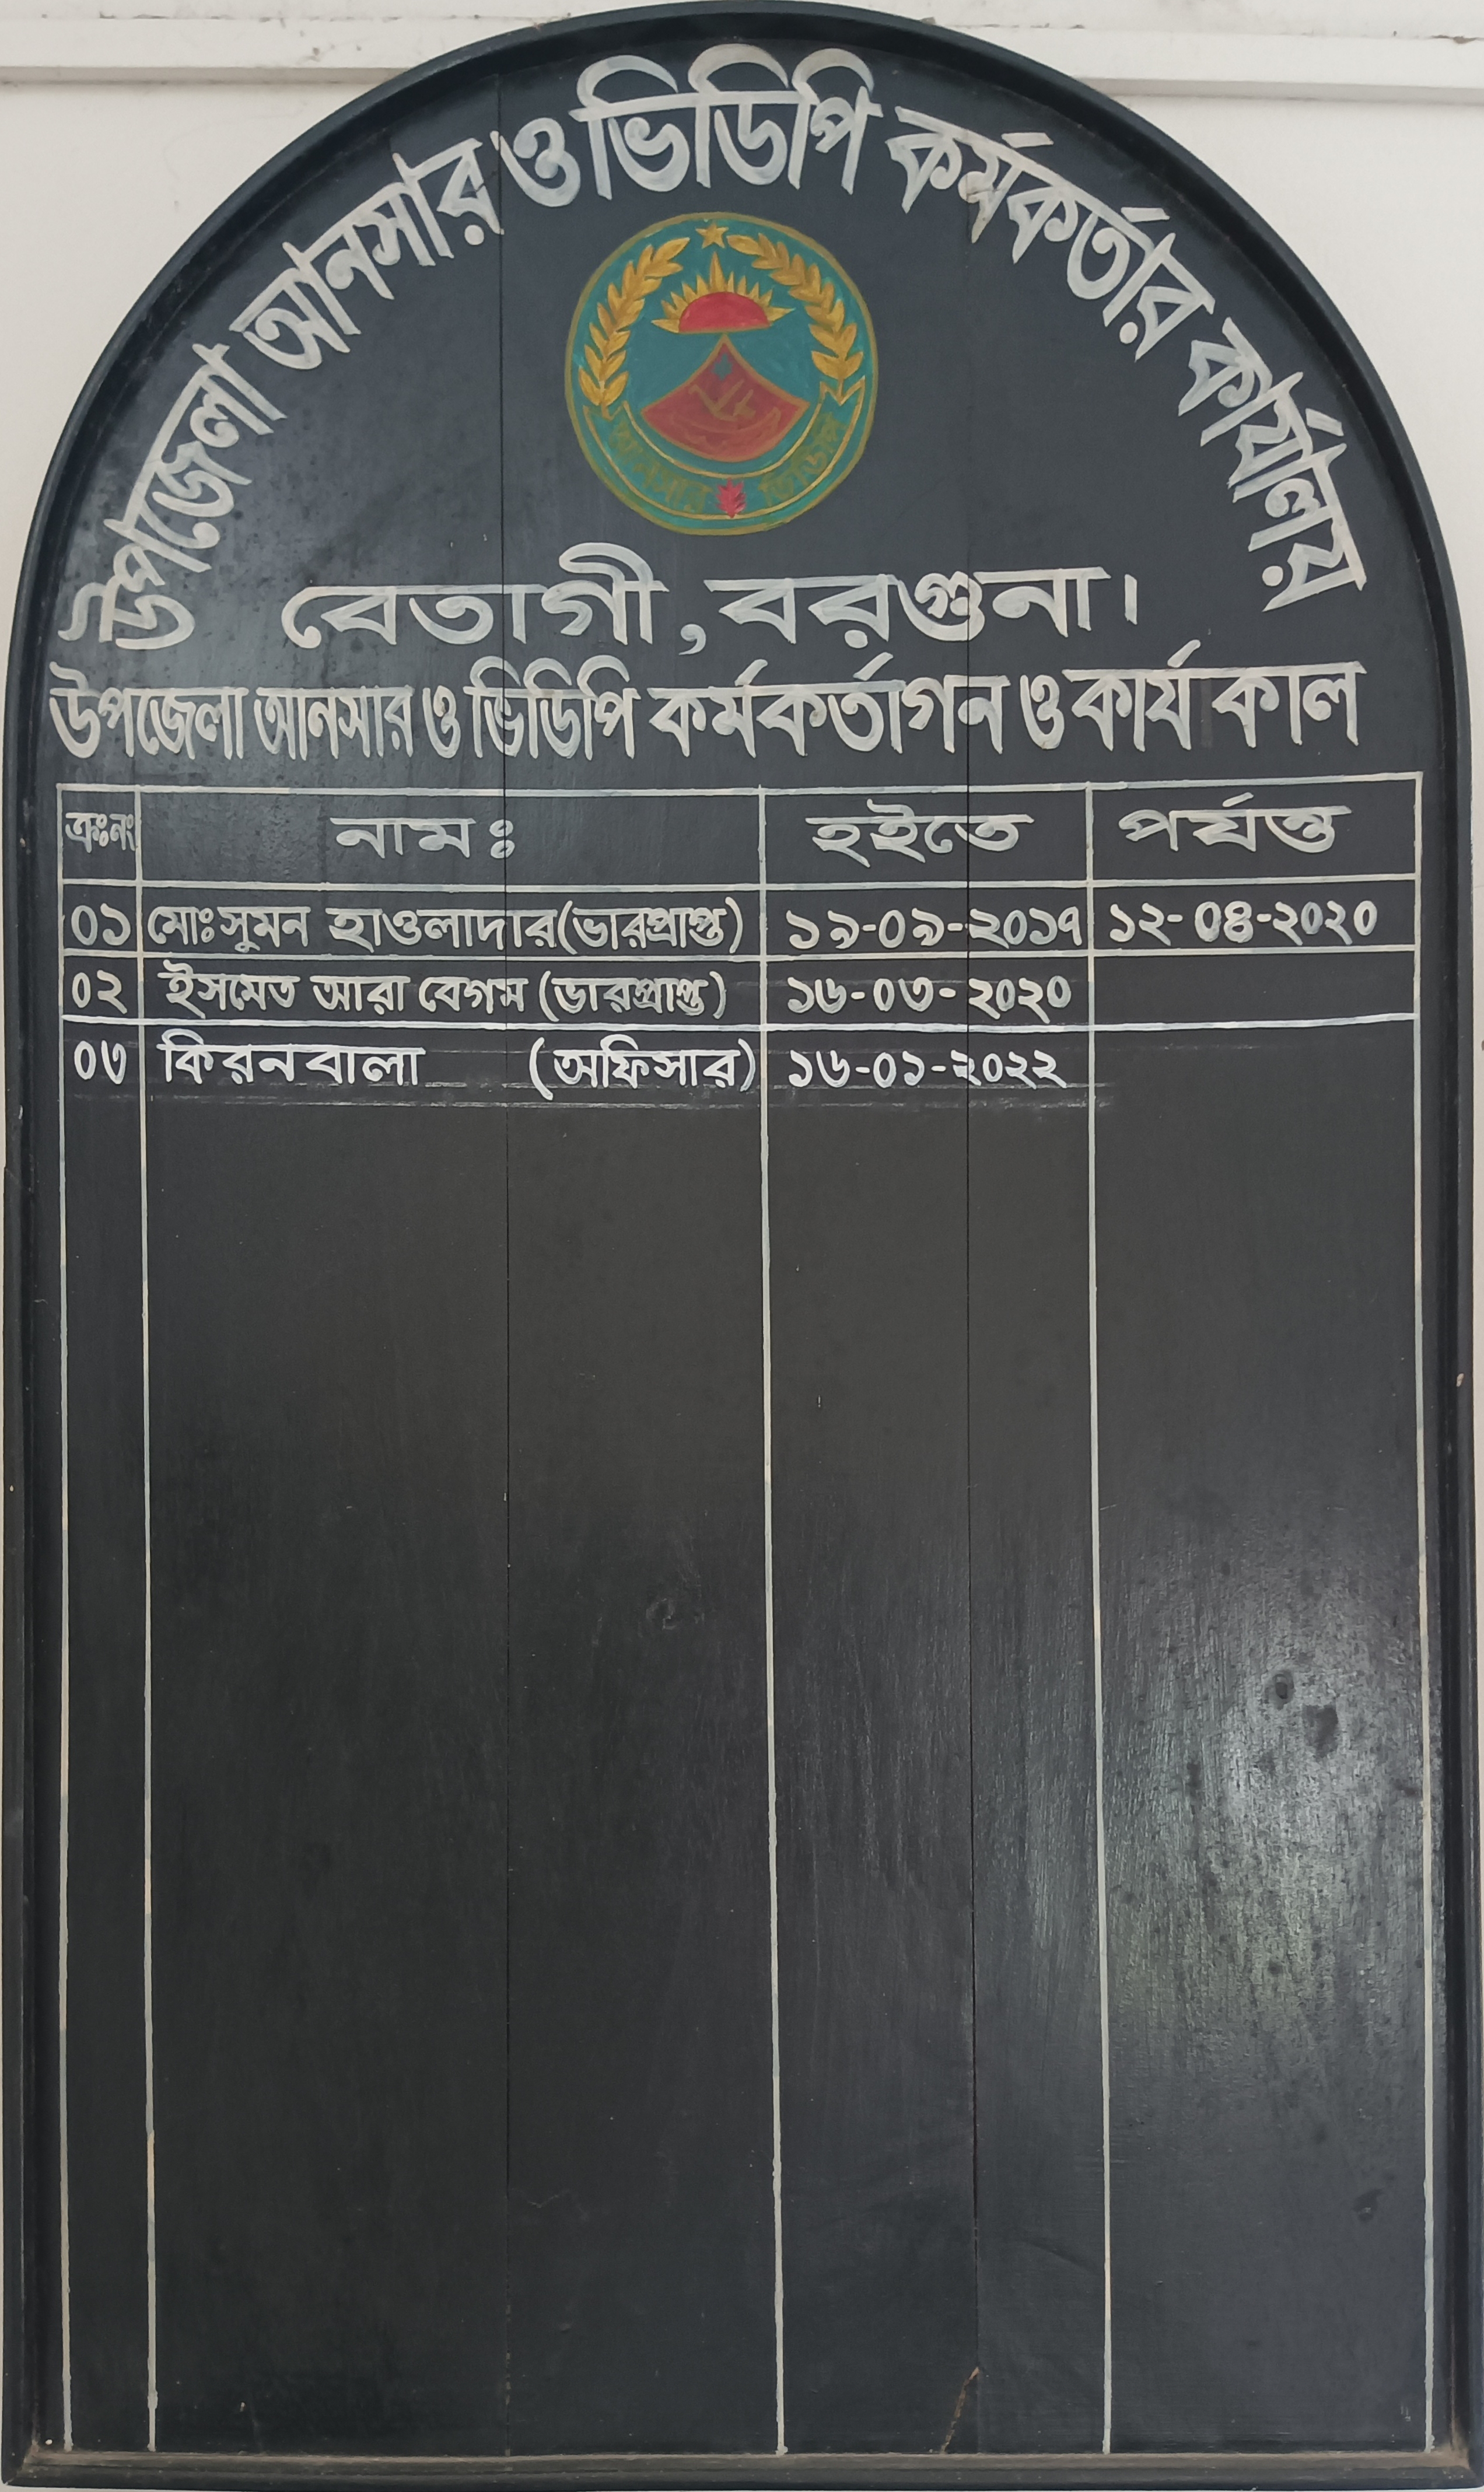 উপজেলা আনসার ও ভিডিপি কর্মকর্তার কার্যালয়
আনসার ভিডিপি
বেতাগী, বরগুনা।
উপজেলা আনসার ও ভিডিপি কর্মকর্তাগন ও কার্য কাল
ক্রঃনং নামঃ হইতে পর্যন্ত
০১ মোঃ সুমন হাওলাদার (ভারপ্রাপ্ত) ১৯-০৯-২০১৭ ১২-০৪-২০২০
০২ ইসমেত আরা বেগম (ভারপ্রাপ্ত) ১৬-০৩-২০২০
০৩ কিরন বালা (অফিসার) ১৬-০১-২০২২